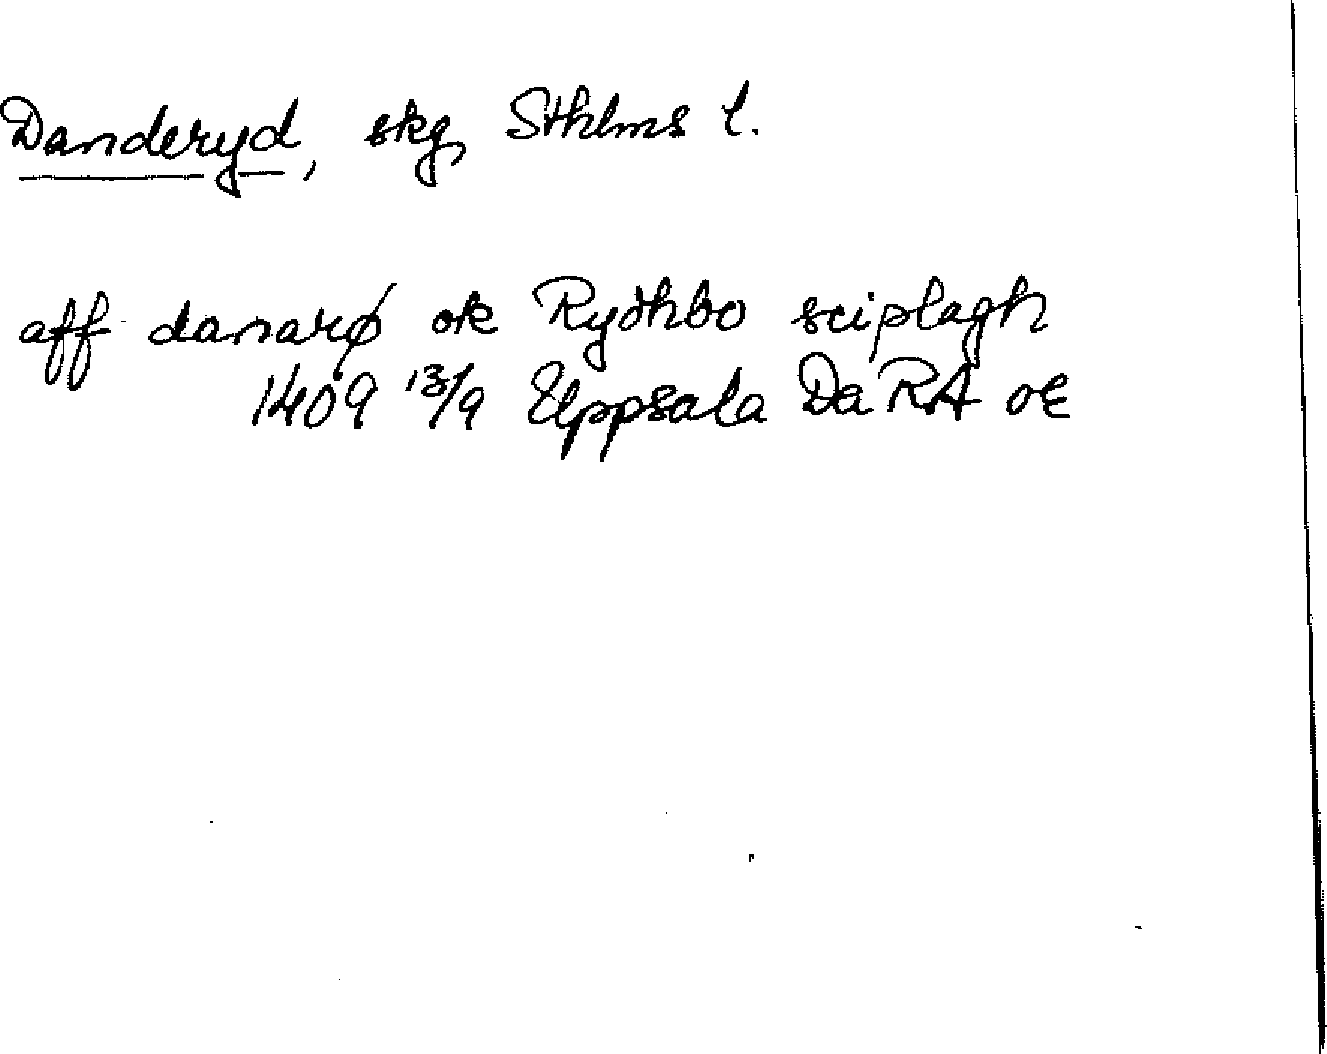 Danderyd, skg, Sthlms l.
aff danarø ok Rydhbo sciplagh
1409 13/9 Uppsala DaRA oE